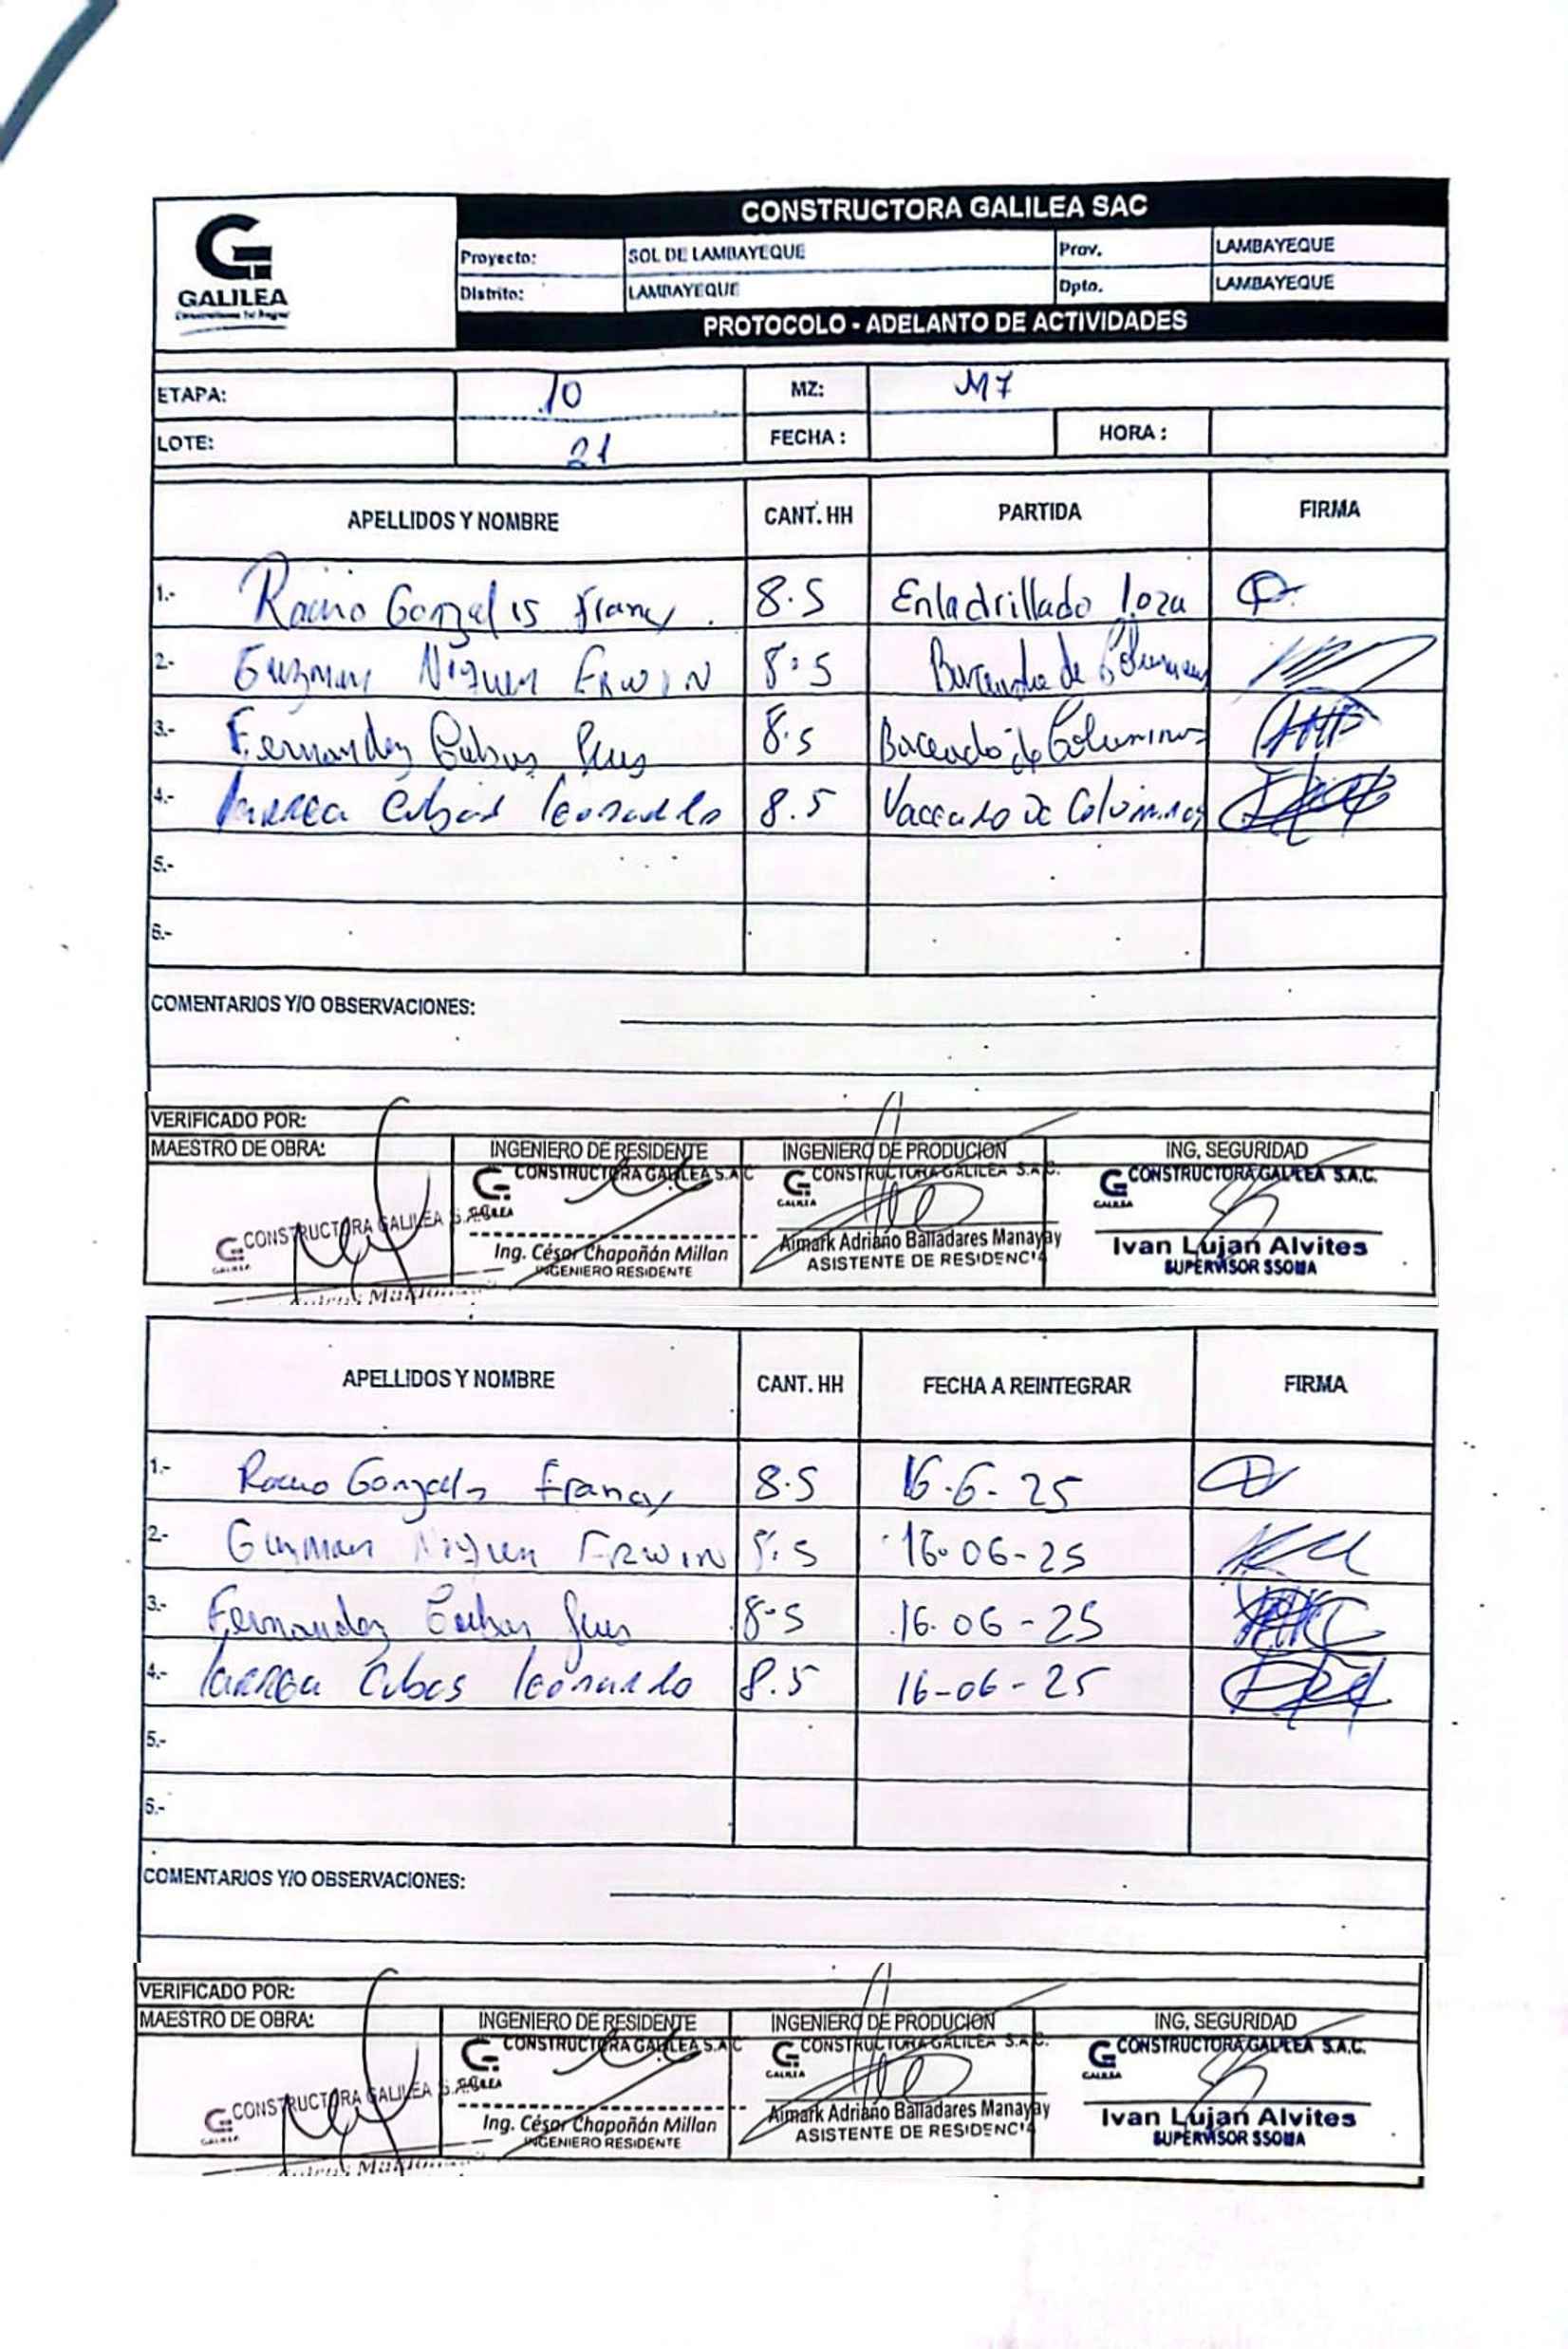 CONSTRUCTORA GALILEA SAC
GALILEA
Proyecto: SOL DE LAMBAYEQUE Prov. LAMBAYEQUE
Distrito: LAMBAYEQUE Dpto. LAMBAYEQUE
PROTOCOLO - ADELANTO DE ACTIVIDADES
ETAPA: 10 MZ: M7
LOTE: 21 FECHA : HORA :
APELLIDOS Y NOMBRE CANT. HH PARTIDA FIRMA
1.- Gonzalis 8.5 Enladrillado loza
2.- Guzman Niquen ERWIN 8.5 de Columnas
3.- Fernandez Cubas 8.5 Baceado de Columnas
4.- larrea Cubas leonardo 8.5 Vaceado de Columnas
5.-
6.-
COMENTARIOS Y/O OBSERVACIONES:
VERIFICADO POR:
MAESTRO DE OBRA: INGENIERO DE RESIDENTE INGENIERO DE PRODUCION ING. SEGURIDAD
CONSTRUCTORA GALILEA S.A.C CONSTRUCTORA GALILEA S.A.C. CONSTRUCTORA GALILEA S.A.C.
GALILEA GALILEA GALILEA
CONSTRUCTORA GALILEA S.A.C
GALILEA
Ing. César Chapoñán Millan Aimark Adriano Balladares Manayay Ivan Lujan Alvites
INGENIERO RESIDENTE ASISTENTE DE RESIDENCIA SUPERVISOR SSOMA
APELLIDOS Y NOMBRE CANT. HH FECHA A REINTEGRAR FIRMA
1.- Gonzals Francy 8.5 16-6-25
2.- Guzman Niquen ERWIN 8.5 16-06-25
3.- Fernandez Cubas 8-5 16-06-25
4.- larrea Cubas leonardo 8.5 16-06-25
5.-
6.-
COMENTARIOS Y/O OBSERVACIONES:
VERIFICADO POR:
MAESTRO DE OBRA: INGENIERO DE RESIDENTE INGENIERO DE PRODUCION ING. SEGURIDAD
CONSTRUCTORA GALILEA S.A.C CONSTRUCTORA GALILEA S.A.C. CONSTRUCTORA GALILEA S.A.C.
GALILEA GALILEA GALILEA
CONSTRUCTORA GALILEA S.A.C
GALILEA
Ing. César Chapoñán Millan Aimark Adriano Balladares Manayay Ivan Lujan Alvites
INGENIERO RESIDENTE ASISTENTE DE RESIDENCIA SUPERVISOR SSOMA